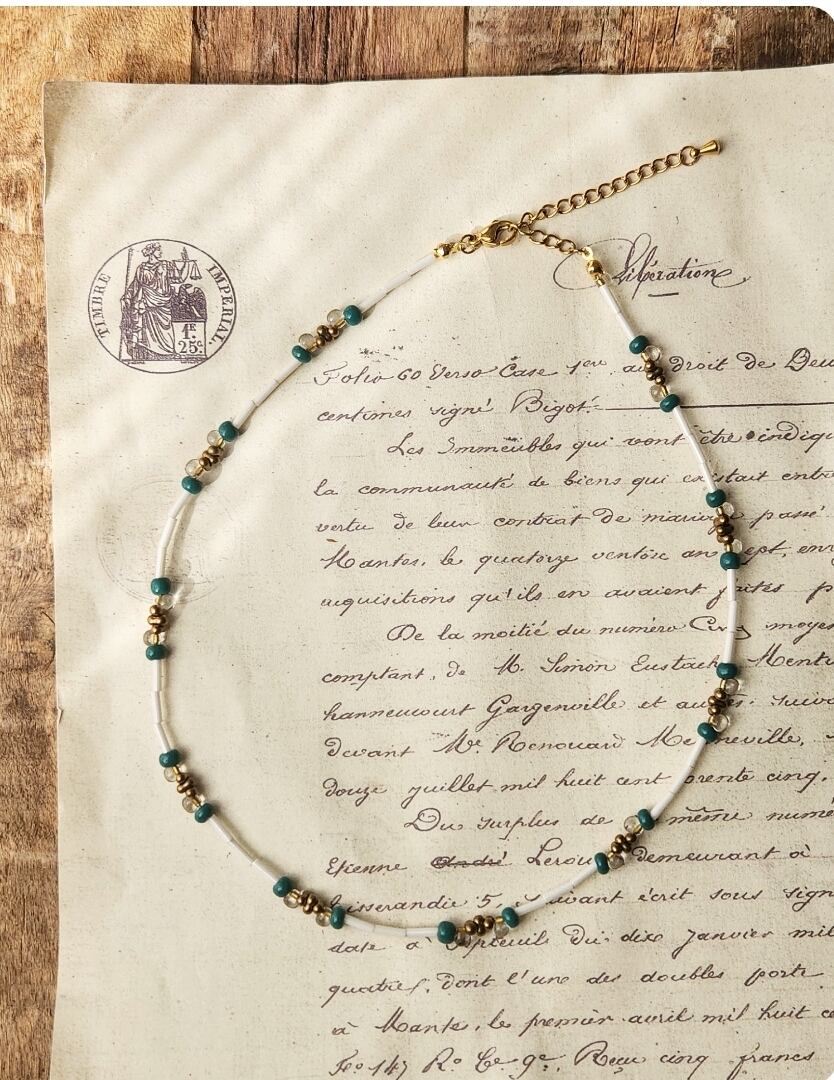 TIMBRE IMPERIAL.
1F.
25c.
Libération
Folio 60 Verso Case 1ere au droit de Deux
centimes signé Bigot.
Les Immeubles qui vont être indiqu
la communauté de biens qui existait entre
vertu de leur contrat de mariage passé
Mantes, le quatorze ventôse an sept, enre
acquisitions qu'ils en avaient faites p
De la moitié du numéro Cinq moyen
comptant, de M. Simon Eustach Menti
hanneucourt Gargenville et autres. suiva
devant Me. Renouard Me neville,
douze juillet mil huit cent trente cinq.
Du surplus de même numé
Etienne André Lerou demeurant à
Tisserandie 5, suivant écrit sous sign
date à Septeuil du dix Janvier mil
quatre, dont l'une des doubles porte
à Mante, le premier avril mil huit c
Fo. 147 Ro. Ce. 9e. Reçu cinq francs